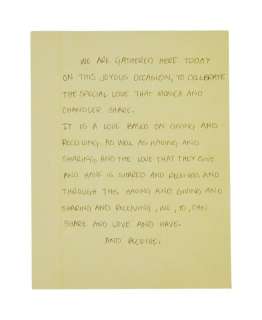 WE ARE GATHERED HERE TODAY
ON THIS JOYOUS OCCASION, TO CELEBRATE
THE SPECIAL LOVE THAT MONICA AND
CHANDLER SHARE.
IT IS A LOVE BASED ON GIVING AND
RECEIVING. AS WELL AS HAVING AND
SHARING. AND THE LOVE THAT THEY GIVE
AND HAVE IS SHARED AND RECEIVED. AND
THROUGH THIS HAVING AND GIVING AND
SHARING AND RECEIVING, WE, TO, CAN
SHARE AND LOVE AND HAVE.
AND RECEIVE.